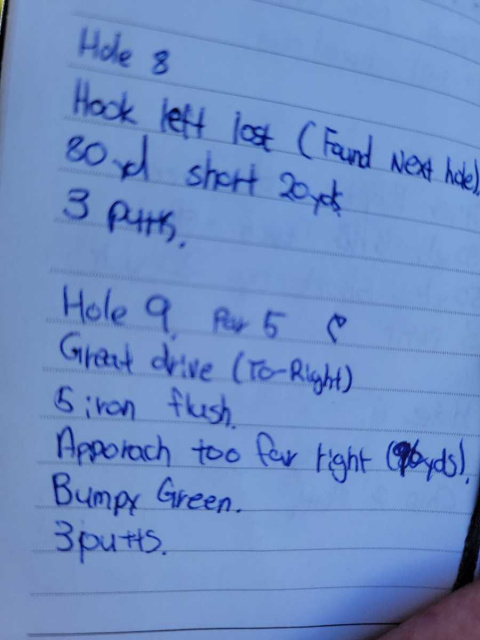 Hole 8
Hook left lost (Found Next hole).
80 yd short 20yds
3 putts.
Hole 9. Par 5
Great drive (To-Right)
5 iron flush.
Apporach too far right (96yds).
Bumpy Green.
3 putts.